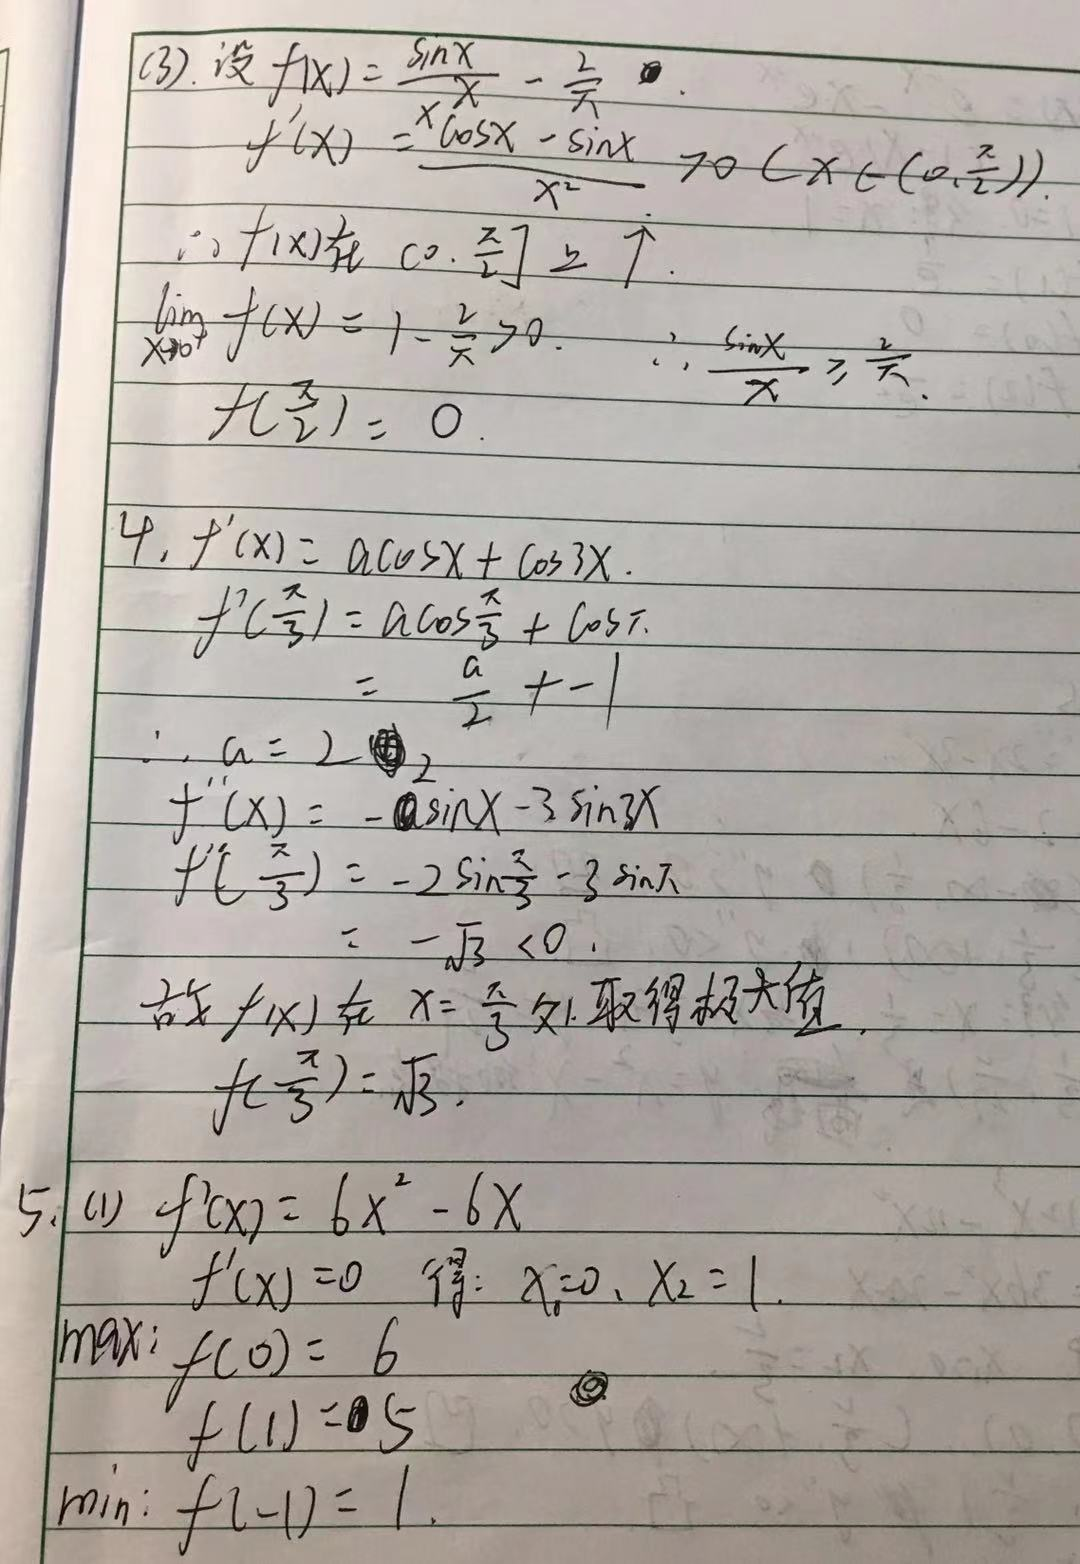 (3). 设 f(x) = sinx/x - 2/π .
f'(x) = (xcosx - sinx)/x² >0 (x∈(0,π/2)).
∴ f(x)在 (0,π/2] 上 ↑.
lim x→0⁺ f(x) = 1 - 2/π >0. ∴ sinx/x ≥ 2/π.
f(π/2) = 0.
4. f'(x) = acosx + cos3x.
f'(π/3) = acosπ/3 + cosπ.
= a/2 + -1
∴ a = 2 2
f''(x) = -asinx - 3sin3x
f''(π/3) = -2sinπ/3 - 3sinπ
= -√3 <0.
故 f(x) 在 x = π/3 处取得极大值.
f(π/3) = √3.
5. (1) f'(x) = 6x² - 6x
f'(x) = 0 得: x₁=0、x₂=1.
max: f(0) = 6
f(1) = 5
min: f(-1) = 1.